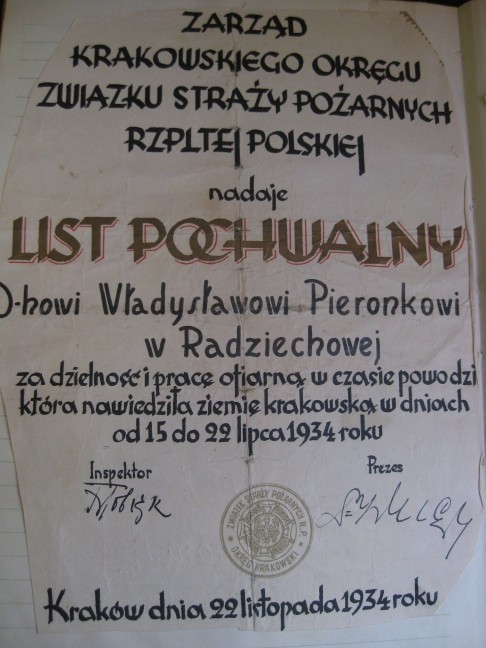 ZARZĄD
KRAKOWSKIEGO OKRĘGU
ZWIĄZKU STRAŻY POŻARNYCH
RZPLTEJ POLSKIEJ
nadaje
LIST POCHWALNY
D-howi Władysławowi Pieronkowi
w Radziechowej
za dzielność i pracę ofiarną w czasie powodzi
która nawiedziła ziemię krakowską w dniach
od 15 do 22 lipca 1934 roku
Inspektor Prezes
ZWIĄZEK STRAŻY POŻARNYCH R.P.
OKRĘG KRAKOWSKI
Kraków dnia 22 listopada 1934 roku